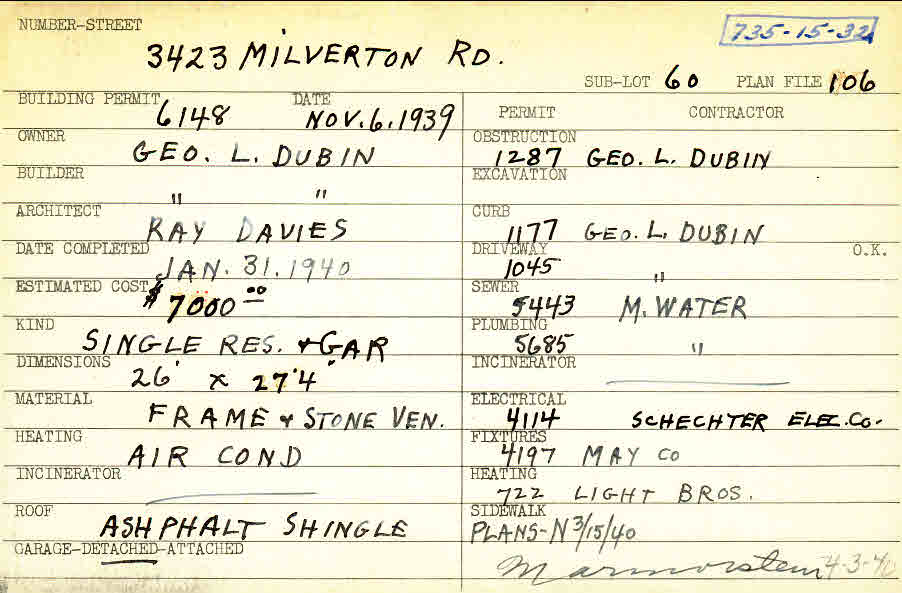 NUMBER-STREET
735-15-32
3423 MILVERTON RD.
SUB-LOT 60 PLAN FILE 106
BUILDING PERMIT 6148 DATE NOV. 6, 1939
PERMIT CONTRACTOR
OWNER GEO. L. DUBIN
OBSTRUCTION 1287 GEO. L. DUBIN
BUILDER " "
EXCAVATION
ARCHITECT RAY DAVIES
CURB 1177 GEO. L. DUBIN
DATE COMPLETED JAN. 31, 1940
DRIVEWAY 1045 " O.K.
ESTIMATED COST $7000.00
SEWER 5443 M. WATER
KIND SINGLE RES. & GAR
PLUMBING 5685 "
DIMENSIONS 26' x 27'4"
INCINERATOR
MATERIAL FRAME & STONE VEN.
ELECTRICAL 4114 SCHECHTER ELEC. Co.
HEATING AIR COND
FIXTURES 4197 MAY CO
INCINERATOR
HEATING 722 LIGHT BROS.
ROOF ASHPHALT SHINGLE
SIDEWALK
PLANS-N 3/15/40
GARAGE-DETACHED-ATTACHED
Marmorstein 4-3-40